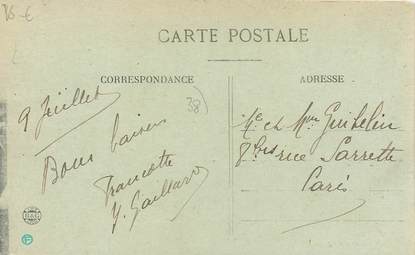 15 €
CARTE POSTALE
CORRESPONDANCE
ADRESSE
38
9 Juillet
Bons baisers
Francette
Y. Gaillard
Me et Mme Guibelin
7 bis rue Sarrette
Paris